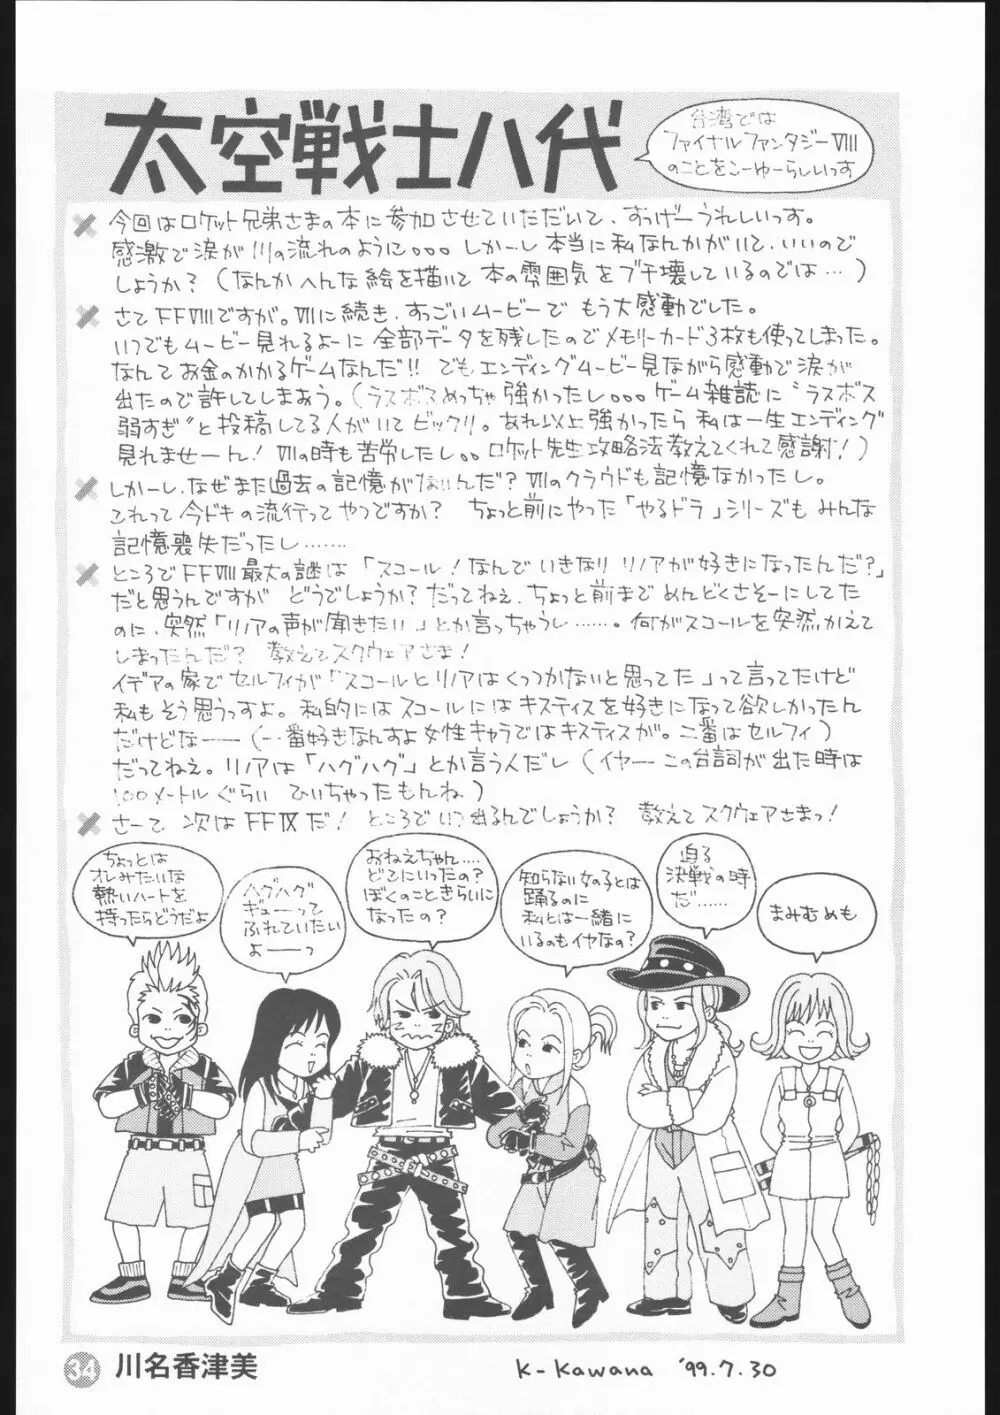 太空戦士八代
台湾では
ファイナルファンタジーVIII
のことをこーゆーらしいっす
今回はロケット兄弟さまの本に参加させていただいて、すっげーうれしいっす。
感激で涙が川の流れのように。。。しかーし本当に私なんかがいて、いいので
しょうか?(なんかへんな絵を描いて本の雰囲気をブチ壊しているのでは…)
さてFFVIIIですが。VIIに続き、すっごいムービーでもう大感動でした。
いつでもムービー見れるよーに全部データを残したのでメモリーカード3枚も使ってしまった。
なんてお金のかかるゲームなんだ!!でもエンディングムービー見ながら感動で涙が
出たので許してしまおう。(ラスボスめっちゃ強かったし。。。ゲーム雑誌に"ラスボス
弱すぎ"と投稿してる人がいてビックリ。あれ以上強かったら私は一生エンディング
見れませーん!VIIの時も苦労したし。。ロケット先生攻略法教えてくれて感謝!)
しかーし、なぜまた過去の記憶がないんだ?VIIのクラウドも記憶なかったし。
これって今ドキの流行ってやつですか? ちょっと前にやった「やるドラ」シリーズもみんな
記憶喪失だったし……
ところでFFVIII最大の謎は「スコール!なんでいきなりリノアが好きになったんだ?」
だと思うんですがどうでしょうか?だってねえ、ちょっと前までめんどくさそーにしてた
のに、突然「リノアの声が聞きたい」とか言っちゃうし……。何がスコールを突然かえて
しまったんだ? 教えてスクウェアさま!
イデアの家でセルフィが「スコールとリノアはくっつかないと思ってた」って言ってたけど
私もそう思うっすよ。私的にはスコールにはキスティスを好きになって欲しかったん
だけどなー(一番好きなんすよ女性キャラではキスティスが。二番はセルフィ)
だってねえ。リノアは「ハグハグ」とか言う人だし(イヤーこの台詞が出た時は
100メートルぐらいひいちゃったもんね)
さーて、次はFFIXだ!ところでいつ出るんでしょうか? 教えてスクウェアさまっ!
ちょっとは
オレみたいな
熱いハートを
持ったらどうだよ
ハグハグ
ギューって
ふれていたい
よーっ
おねえちゃん…
どこにいったの?
ぼくのこときらいに
なったの?
知らない女の子とは
踊るのに
私とは一緒に
いるのもイヤなの?
迫る
決戦の時
だ……
まみむめも
34
川名香津美
K-Kawana '99.7.30